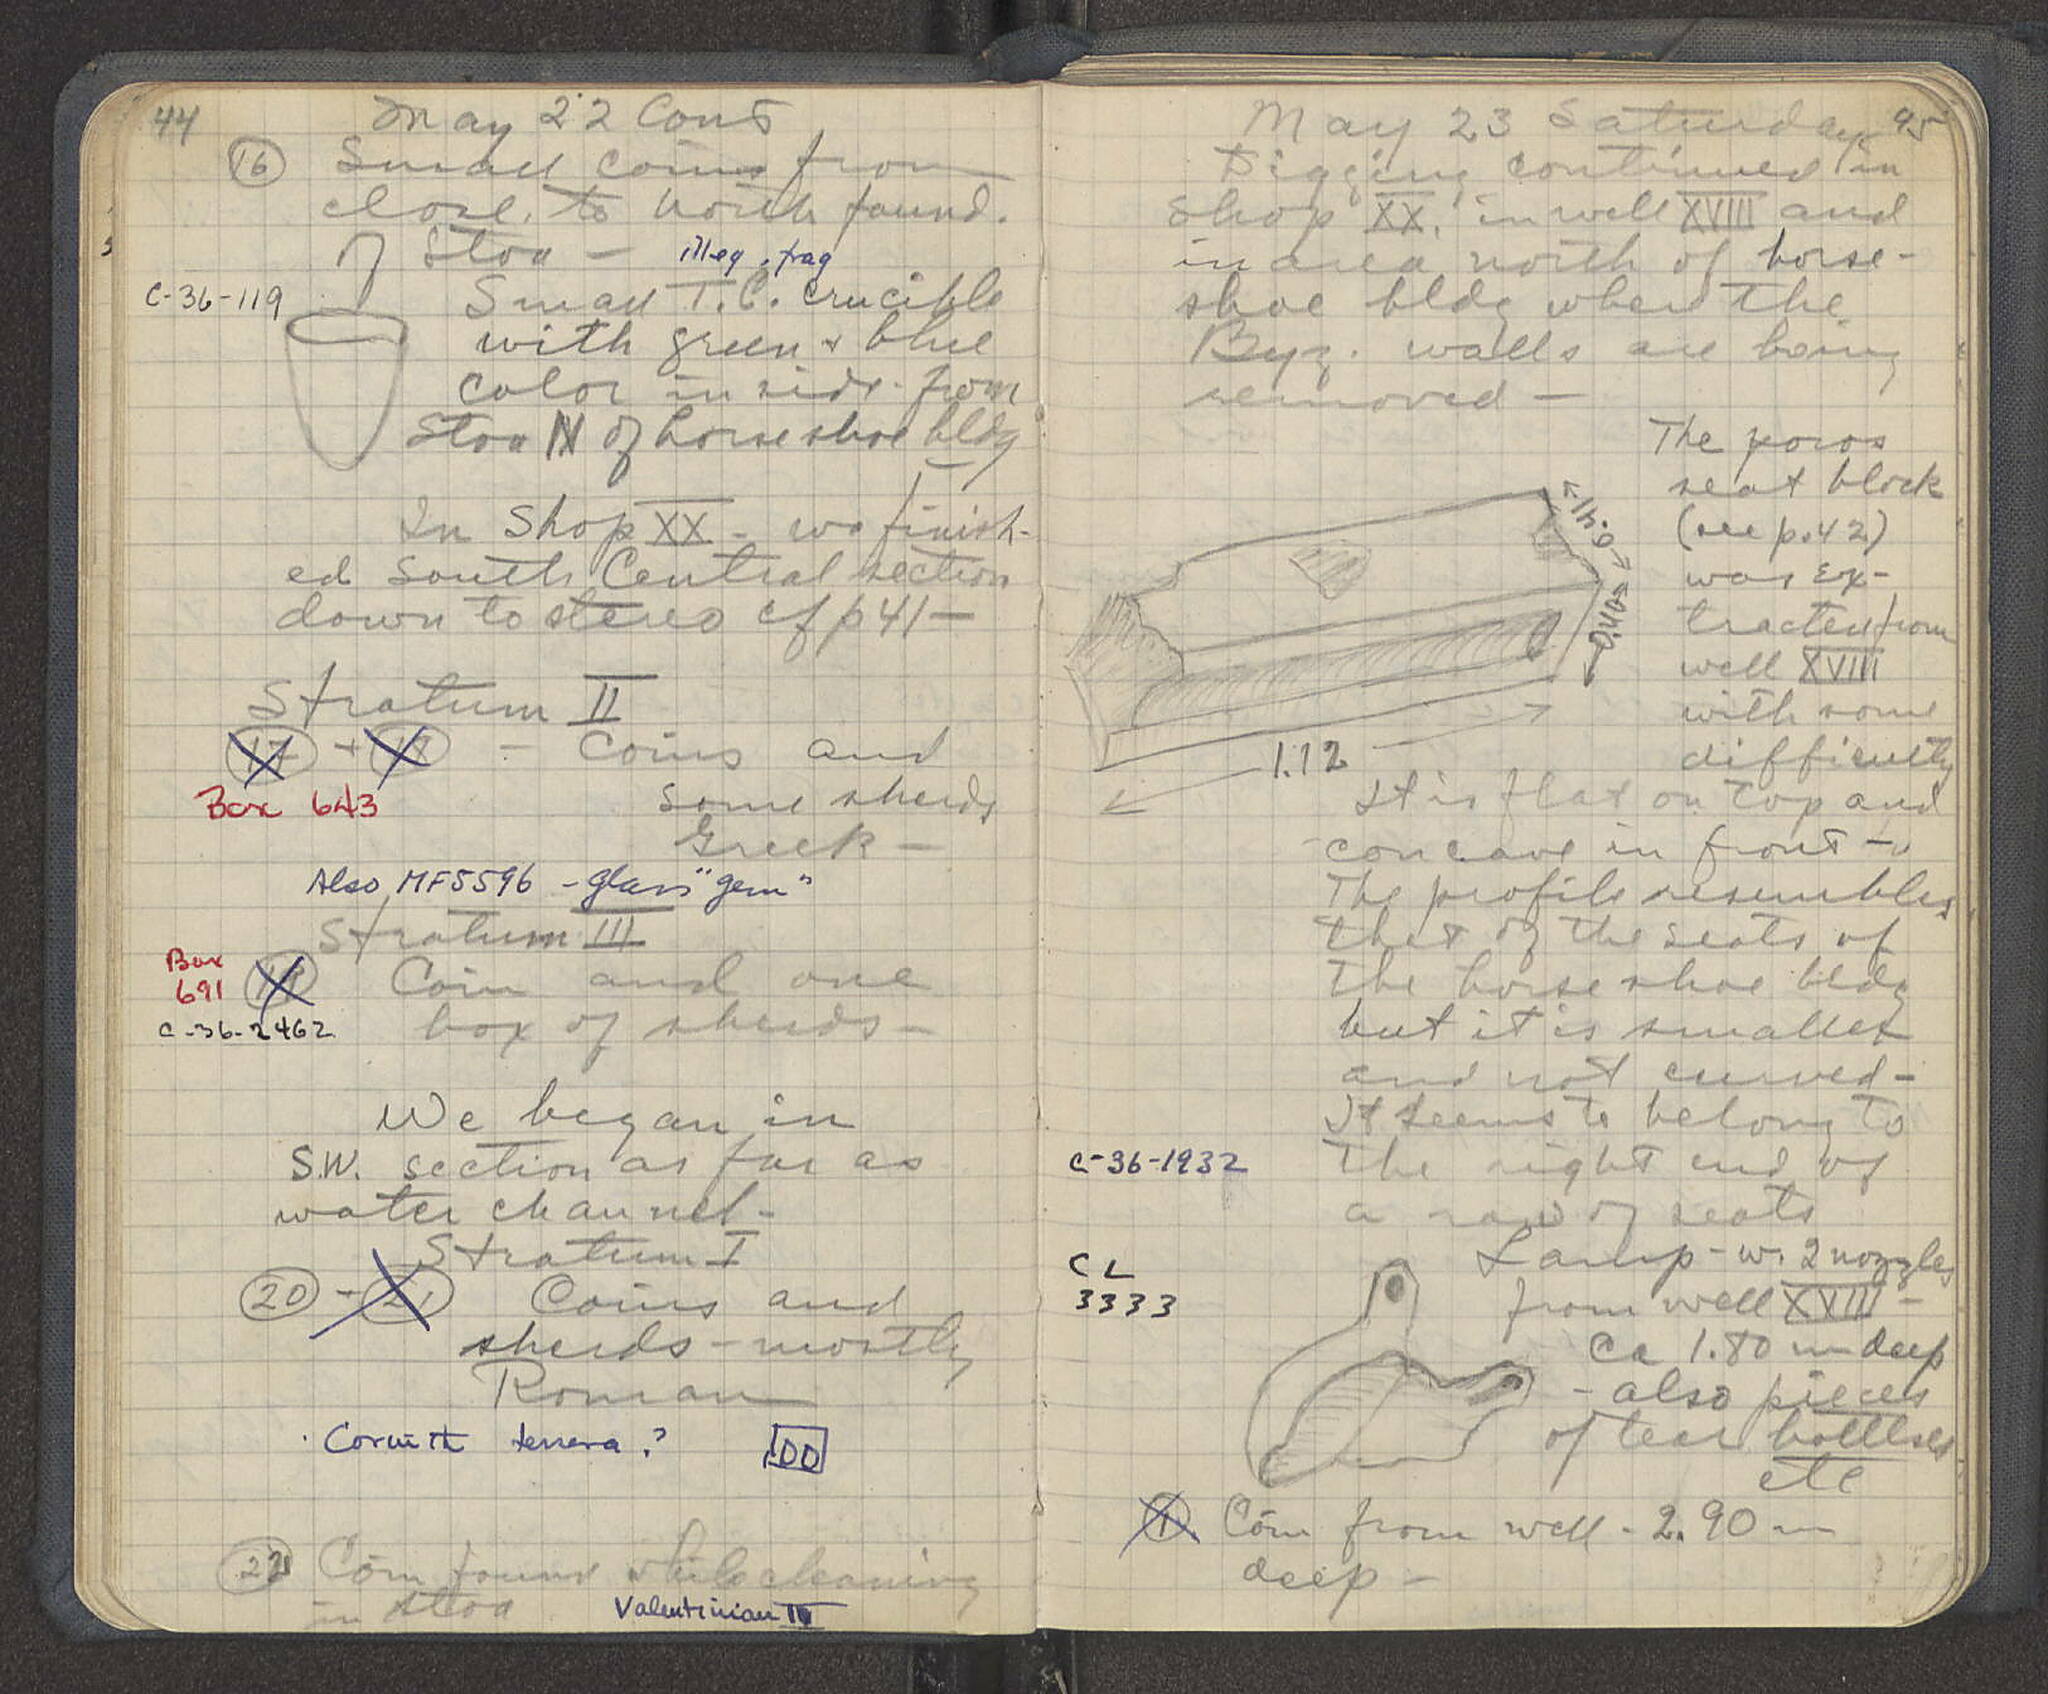 44
May 22 Cont
16 Small coins from
close to north found.
Stoa - illeg. frag
C-36-119 Small T.C. crucible
with green & blue
color inside - from
Stoa N of horseshoe bldg
In Shop XX - we finish-
ed South Central section
down to stereo cf p 41 -
Stratum II
17 + 18 - Coins and
Box 643 some sherds
Greek -
Also MF5596 - glass "gem"
Stratum III
Box
691 19 Coin and one
C-36-2462 box of sherds -
We began in
S.W. section as far as
water channel -
Stratum I
20 - 21 Coins and
sherds - mostly
Roman
Corinth tessera? DD
22 Coin found while cleaning
in stoa Valentinian III
May 23 Saturday 95
Digging continued in
Shop XX, in well XVIII and
in area north of horse-
shoe bldg where the
Byz. walls are being
removed -
The poros
seat block
(see p. 42)
was ex-
tracted from
well XVIII
with some
difficulty
0.41
0.40
1.12
It is flat on top and
concave in front -
The profile resembles
that of the seats of
the horse shoe bldg
but it is smaller
and not curved -
It seems to belong to
C-36-1932 the right end of
a row of seats
CL
3333
Lamp - w. 2 nozzles
from well XXIII -
Ca 1.80 m deep
- also pieces
of tear bottles
etc
1 Coin from well - 2.90 m
deep -